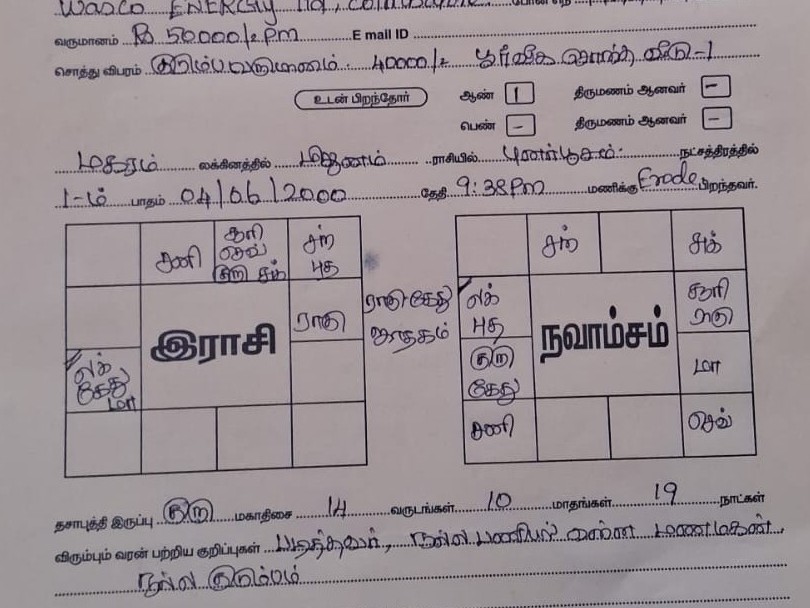 WASCO ENERGY
வருமானம் Rs 50000/= PM E mail ID
சொத்து விபரம் குடும்ப வருமானம் - 40000/= பூர்வீக சொந்த வீடு-1
உடன் பிறந்தோர் ஆண் 1 திருமணம் ஆனவர் -
பெண் - திருமணம் ஆனவர் -
மகரம் லக்கினத்தில் மிதுனம் ராசியில் புனர்பூசம் நட்சத்திரத்தில்
1-ம் பாதம் 04/06/2000 தேதி 9:38PM மணிக்கு Erode பிறந்தவர்.
சனி
சூரி
செவ்
குரு சுக்
சந்
புத
ராகு
இராசி
லக்
கேது
மா
ராகு கேது
ஜாதகம்
சந்
சுக்
லக்
புத
சூரி
ராகு
நவாம்சம்
குரு
கேது
மா
சனி
செவ்
தசாபுத்தி இருப்பு குரு மகாதிசை 14 வருடங்கள் 10 மாதங்கள் 19 நாட்கள்
விரும்பும் வரன் பற்றிய குறிப்புகள் படித்தவர், நல்ல பணியில் உள்ள மணமகன்,
நல்ல குடும்பம்